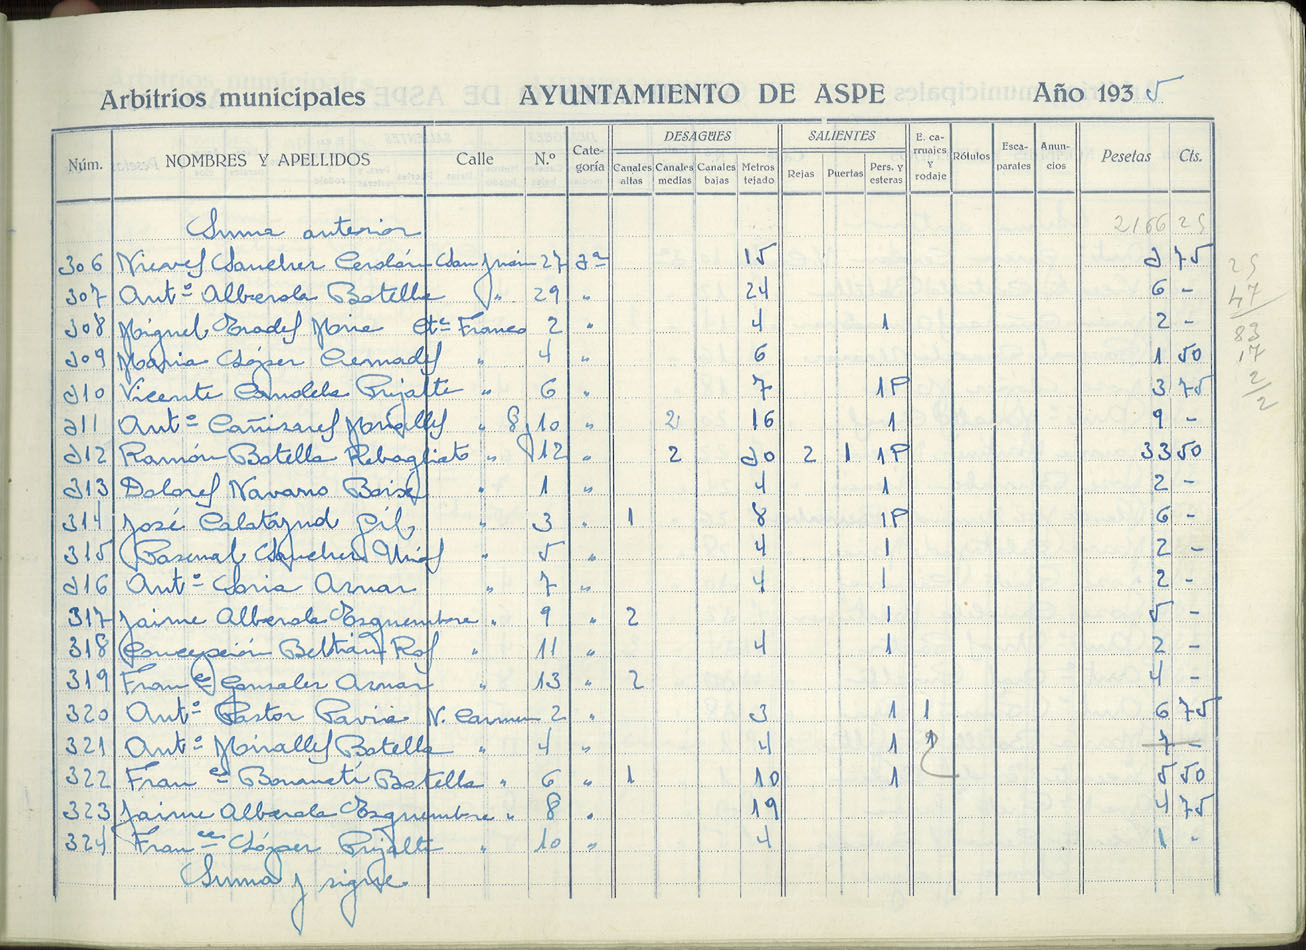 Arbitrios municipales AYUNTAMIENTO DE ASPE Año 1935
Núm. NOMBRES Y APELLIDOS Calle N.º Cate-goría DESAGÜES Canales altas Canales medias Canales bajas Metros tejado SALIENTES Rejas Puertas Pers. y esteras E. ca-rruajes y rodaje Rótulos Esca-parates Anun-cios Pesetas Cts.
Suma anterior 2166 25
306 Nieves Sanchez Cerdán San Juan 27 3ª 15 3 75
307 Antº Alberola Botella " 29 " 24 6 -
308 Miguel Prades Mira Ctª Franco 2 " 4 1 2 -
309 Maria López Cremades " 4 " 6 1 50
310 Vicente Candela Prijalte " 6 " 7 1P 3 75
311 Antº Cañizares Miralles " 8, 10 " 2 16 1 9 -
312 Ramón Botella Rebagliato " 12 " 2 30 2 1 1P 33 50
313 Dolores Navarro Boix " 1 " 4 1 2 -
314 José Calatayud Gil " 3 " 1 8 1P 6 -
315 Pascual Sanchez " 5 " 4 1 2 -
316 Antº Soria Aznar " 7 " 4 1 2 -
317 Jaime Alberola Esquembre " 9 " 2 1 5 -
318 Concepción Beltrán Ros " 11 " 4 1 2 -
319 Franco Gonzalez Aznar " 13 " 2 4 -
320 Antº Pastor Pavia N. Carmen 2 " 3 1 1 6 75
321 Antº Miralles Botella " 4 " 4 1 2 7 -
322 Franco Bonmatí Botella " 6 " 1 10 1 5 50
323 Jaime Alberola Esquembre " 8 " 19 4 75
324 Franco López Prijalte " 10 " 4 1 -
Suma y sigue
25
47
83
17
2/2